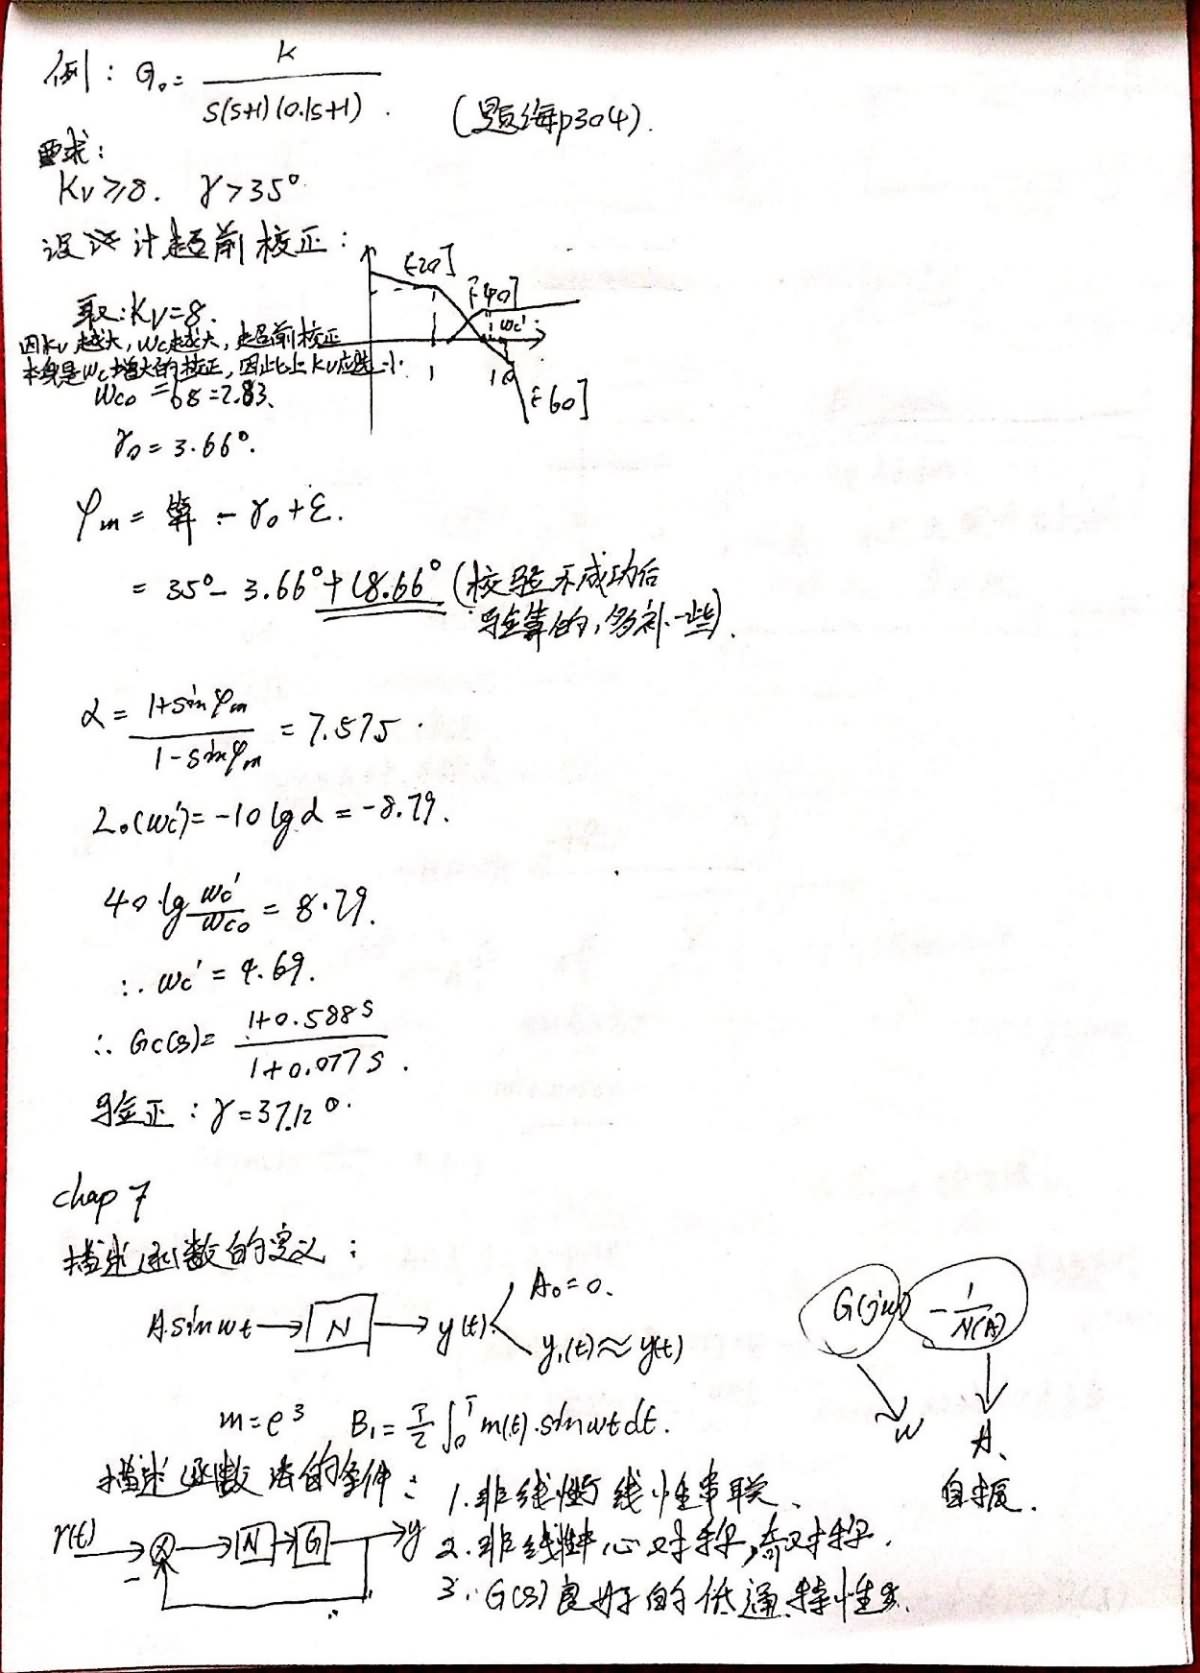 例: G₀ = K / s(s+1)(0.1s+1) . (题海p304).
要求:
Kv≥8. γ>35°
设计超前校正:
[-20]
[-40]
ωc'
1
10
[-60]
取: Kv=8.
因Kv越大, ωc越大, 超前校正
本身是ωc增大的校正, 因此上Kv应选小.
ωco = √8 = 2.83.
γ₀ = 3.66°.
φm = - γ₀ + ε.
= 35° - 3.66° + 18.66° (校验不成功后
验算的, 多补一些).
α = 1+sinφm / 1-sinφm = 7.575 .
L₀(ωc') = -10 lgα = -8.79.
40 lg ωc'/ωco = 8.79.
∴ ωc' = 4.69.
∴ Gc(s) = 1+0.588s / 1+0.077s .
验正: γ = 37.12°.
chap 7
描述函数的定义:
A sinωt → N → y(t). A₀=0.
y₁(t) ≈ y(t)
G(jω) -1/N(A)
ω A.
自振.
m = e³ B₁ = T/2 ∫₀ᵀ m(t)·sinωt dt.
描述函数法的条件: 1. 非线性与线性串联、
r(t) - N G y 2. 非线性中心对称, 奇对称.
3. G(s)良好的低通特性.